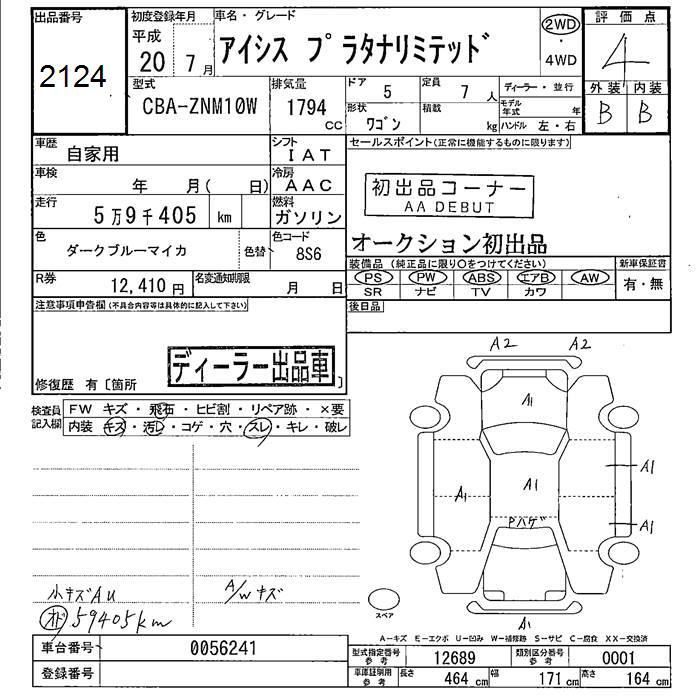 出品番号
2124
初度登録年月
平成
20 7月
車名・グレード
アイシス プラタナリミテッド
2WD
・
4WD
評価点
4
外装 内装
B B
型式
CBA-ZNM10W
排気量
1794
CC
ドア
5
定員
7 人
形状
ワゴン
積載
kg
ディーラー・並行
モデル年式 年
ハンドル 左・右
車歴
自家用
シフト
IAT
車検
年 月( 日)
冷房
AAC
走行
5万9千405 km
燃料
ガソリン
色
ダークブルーマイカ
色替
色コード
8S6
R券
12,410円
名変通知期限
月 日
セールスポイント(正常に機能するものに限ります)
初出品コーナー
AA DEBUT
オークション初出品
装備品(純正品に限り○をつけてください)
PS PW ABS エアB AW
SR ナビ TV カワ
新車保証書
有・無
後日品
注意事項申告欄(不具合内容等は具体的に記入して下さい)
ディーラー出品車
修復歴 有〔箇所 〕
検査員
記入欄
FW キズ・飛石・ヒビ割・リペア跡・×要
内装 キズ・汚レ・コゲ・穴・スレ・キレ・破レ
小キズAU
A/Wキズ
オド 59405km
A2 A2
A1
A1 A1 A1
Pハゲ
A1
A1
スペア
A-キズ E-エクボ U-凹み W-補修跡 S-サビ C-腐食 XX-交換済
車台番号
0056241
登録番号
型式指定番号
参考
12689
類別区分番号
参考
0001
車庫証明用
参考
長さ
464 cm
幅
171 cm
高さ
164 cm